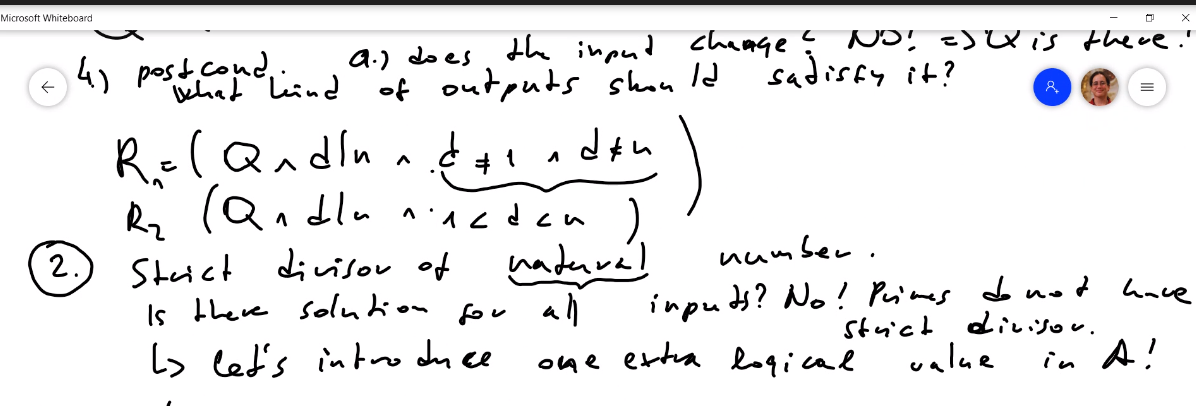 Microsoft Whiteboard
a.) does the input change? NO! => Q is there!
4.) postcond.
what kind of outputs should satisfy it?
R₁=( Q ∧ d|n ∧ d ≠ 1 ∧ d ≠ n )
R₂ (Q ∧ d|n ∧ 1 < d < n )
2. Strict divisor of natural number.
Is there solution for all inputs? No! Primes do not have
strict divisor.
↳ let's introduce one extra logical value in A!